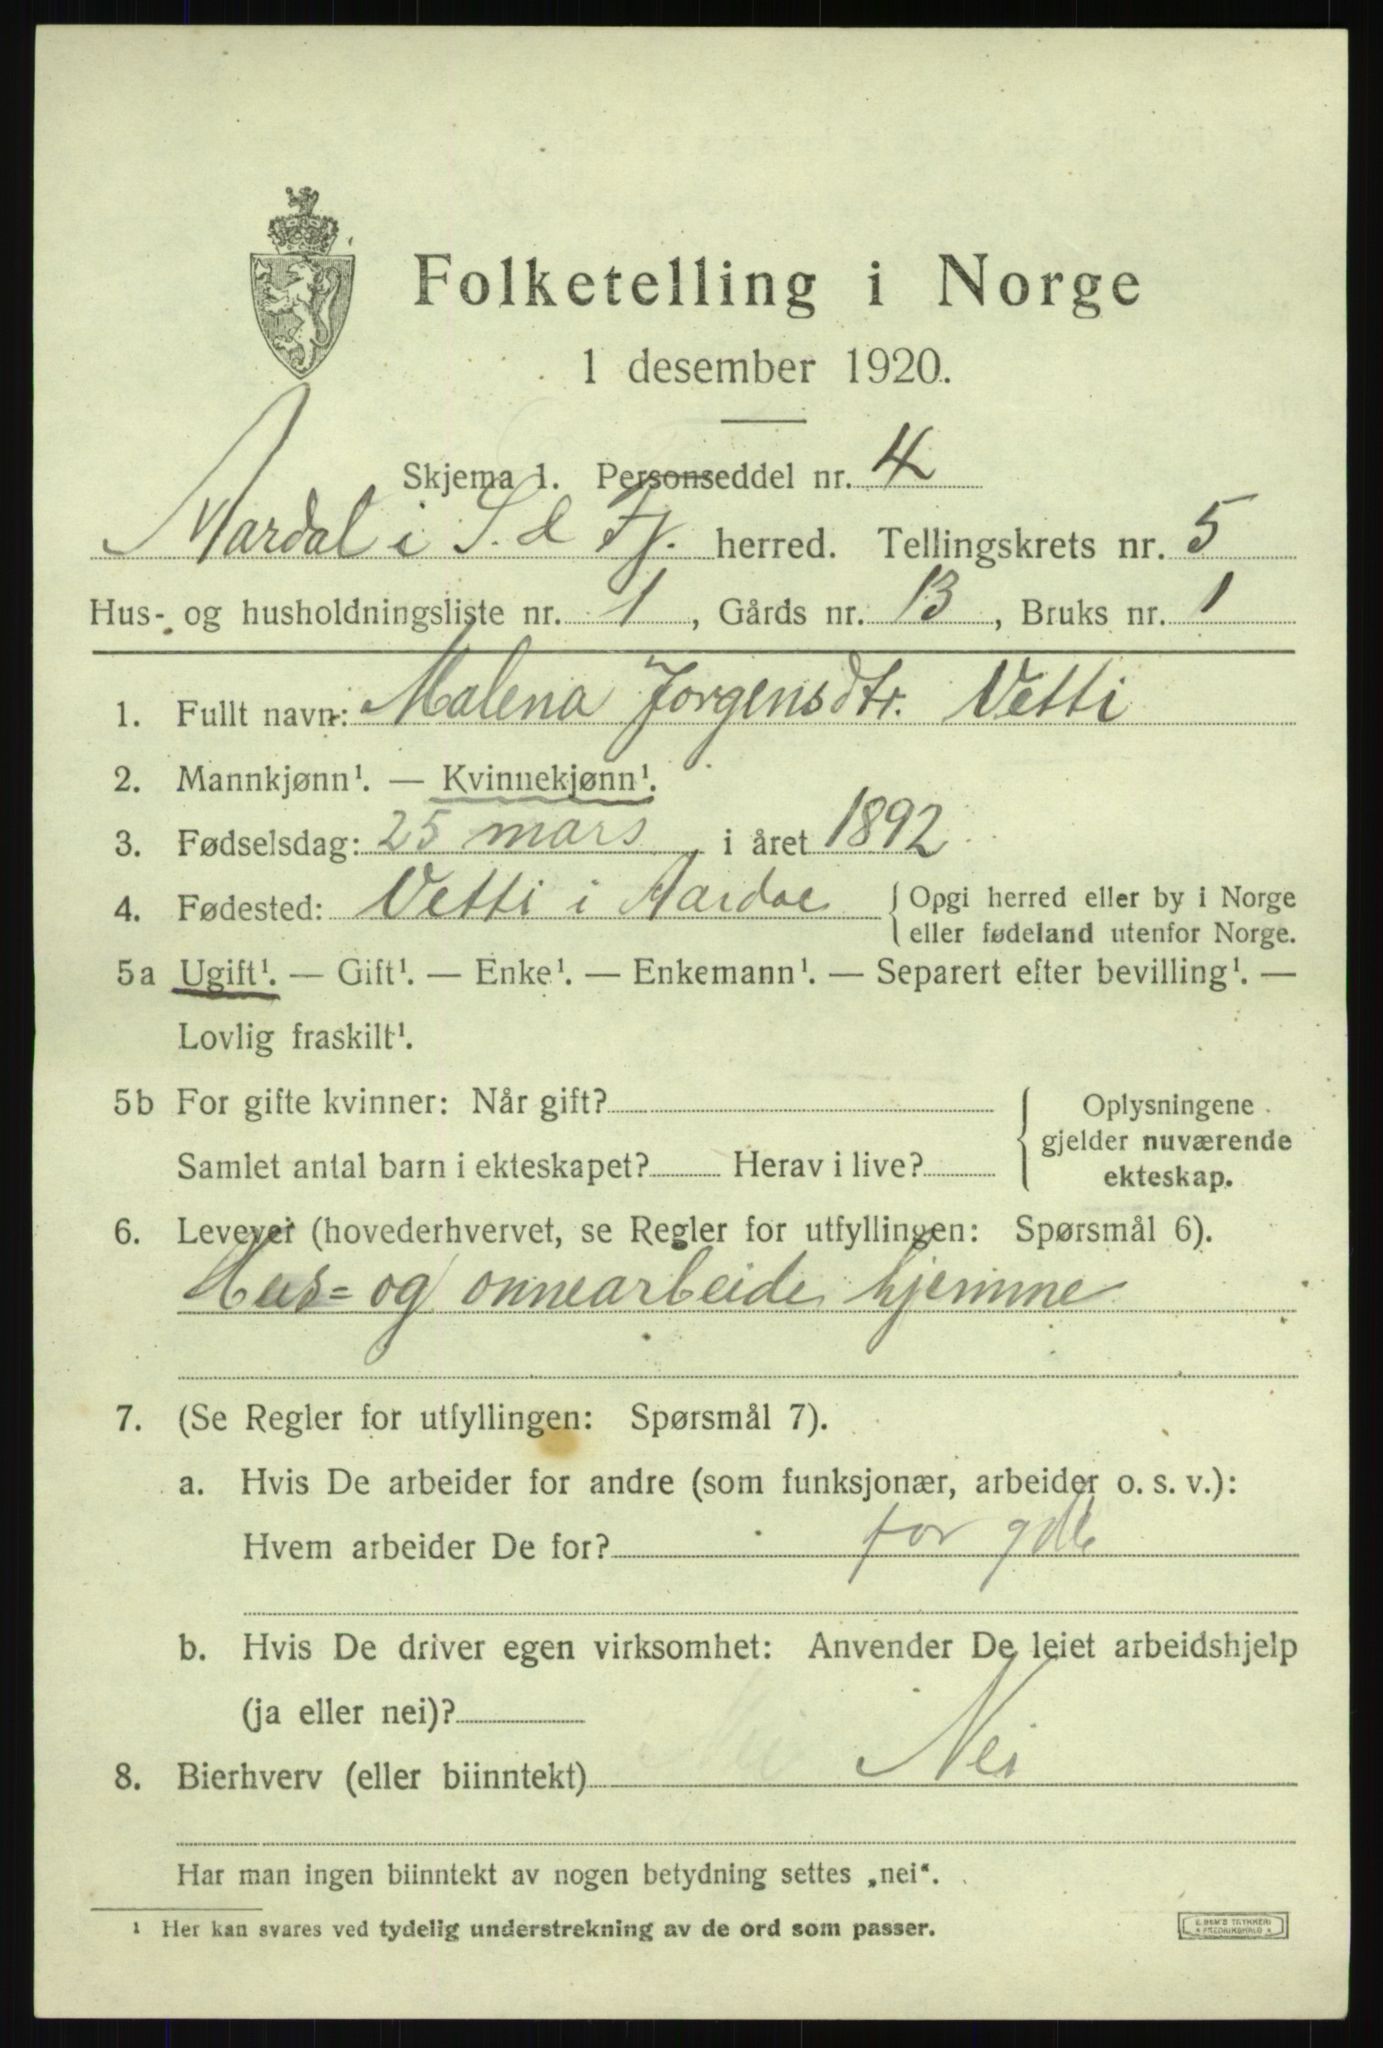 Folketelling i Norge
1 desember 1920.
Skjema 1. Personseddel nr. 4
Aardal i S. & Fj. herred. Tellingskrets nr. 5
Hus- og husholdningsliste nr. 1, Gårds nr. 13, Bruks nr. 1
1. Fullt navn: Malena Jørgensdtr. Vetti
2. Mannkjønn¹. — Kvinnekjønn¹.
3. Fødselsdag: 25 mars i året 1892
4. Fødested: Vetti i Aardal { Opgi herred eller by i Norge
eller fødeland utenfor Norge.
5a Ugift¹. — Gift¹. — Enke¹. — Enkemann¹. — Separert efter bevilling¹. —
Lovlig fraskilt¹.
5b For gifte kvinner: Når gift?
Samlet antal barn i ekteskapet? Herav i live?
{ Oplysningene
gjelder nuværende
ekteskap.
6. Levevei (hovederhvervet, se Regler for utfyllingen: Spørsmål 6).
Hus- og onnearbeide hjemme
7. (Se Regler for utfyllingen: Spørsmål 7).
a. Hvis De arbeider for andre (som funksjonær, arbeider o. s. v.):
Hvem arbeider De for? for
b. Hvis De driver egen virksomhet: Anvender De leiet arbeidshjelp
(ja eller nei)?
8. Bierhverv (eller biinntekt) Nei
Har man ingen biinntekt av nogen betydning settes „nei“.
¹ Her kan svares ved tydelig understrekning av de ord som passer.
E. SEM'S TRYKKERI
* FREDRIKSHALD *